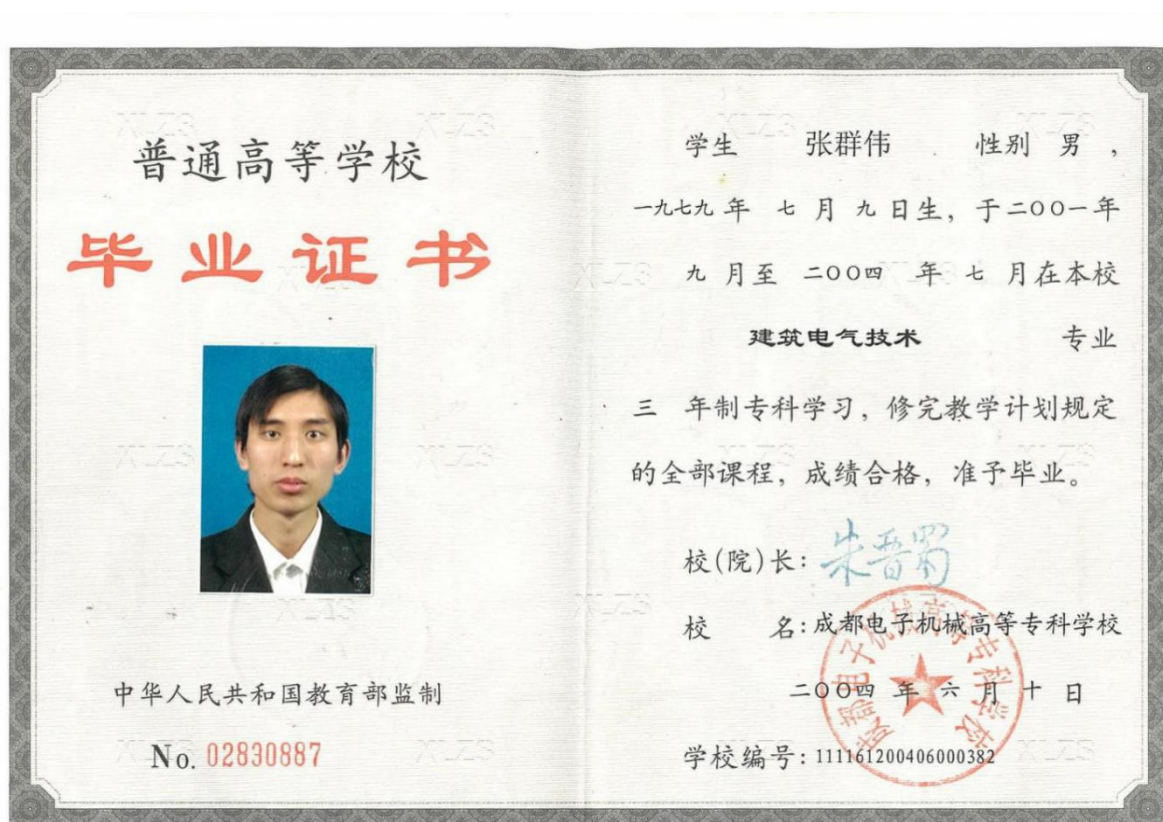 普通高等学校
毕业证书
中华人民共和国教育部监制
No. 02830887
学生 张群伟 性别 男，
一九七九 年 七 月 九 日生，于二〇〇一年
九 月至 二〇〇四 年 七 月在本校
建筑电气技术 专业
三 年制专科学习，修完教学计划规定
的全部课程，成绩合格，准予毕业。
校(院)长：朱晋蜀
校 名：成都电子机械高等专科学校
二〇〇四 年 六 月 十 日
学校编号：111161200406000382
成都电子机械高等专科学校